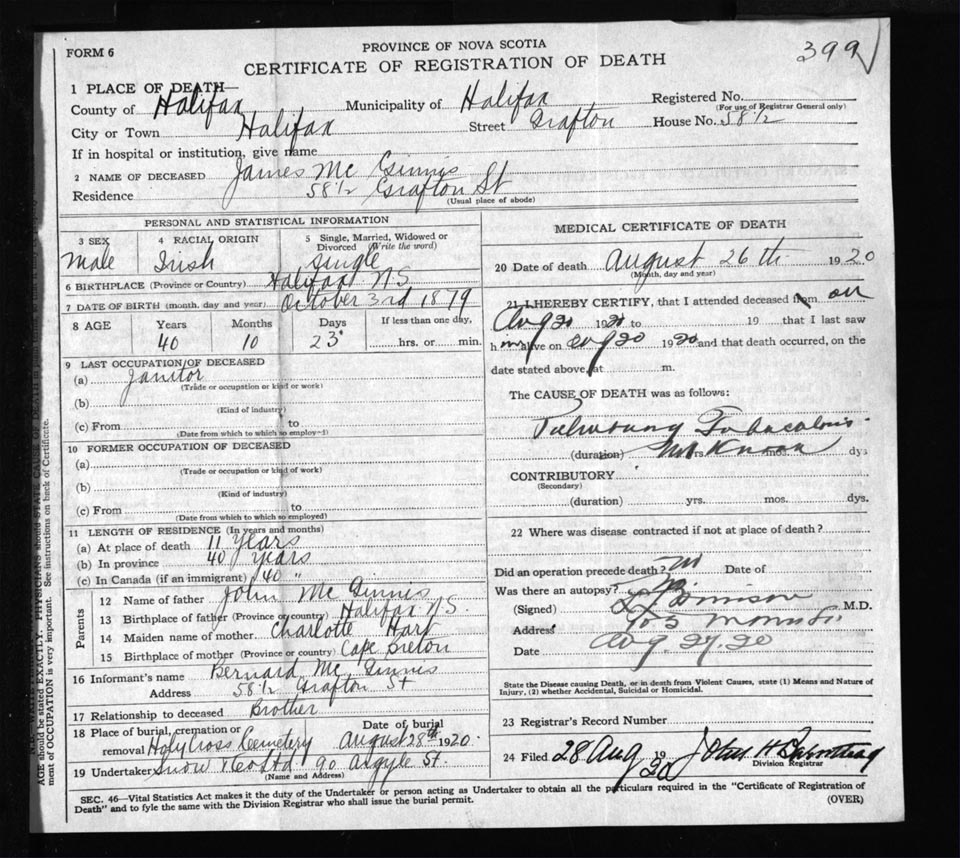 FORM 6
PROVINCE OF NOVA SCOTIA
399
CERTIFICATE OF REGISTRATION OF DEATH
1 PLACE OF DEATH—
County of Halifax Municipality of Halifax Registered No.
(For use of Registrar General only)
City or Town Halifax Street Grafton House No. 58 1/2
If in hospital or institution, give name
2 NAME OF DECEASED James Mc Ginnis
Residence 58 1/2 Grafton St
(Usual place of abode)
PERSONAL AND STATISTICAL INFORMATION
3 SEX 4 RACIAL ORIGIN 5 Single, Married, Widowed or Divorced (Write the word)
Male Irish Single
6 BIRTHPLACE (Province or Country) Halifax N.S.
7 DATE OF BIRTH (month, day and year) October 3rd 1879
8 AGE Years Months Days If less than one day,
40 10 23 hrs. or min.
9 LAST OCCUPATION OF DECEASED
(a) Janitor
(Trade or occupation or kind or work)
(b)
(Kind of industry)
(c) From to
(Date from which to which so employed)
10 FORMER OCCUPATION OF DECEASED
(a)
(Trade or occupation or kind of work)
(b)
(Kind of industry)
(c) From to
(Date from which to which so employed)
11 LENGTH OF RESIDENCE (In years and months)
(a) At place of death 11 years
(b) In province 40 years
(c) In Canada (if an immigrant) 40 "
Parents
12 Name of father John Mc Ginnis
13 Birthplace of father (Province or country) Halifax N.S.
14 Maiden name of mother Charlotte Hart
15 Birthplace of mother (Province or country) Cape Breton
16 Informant's name Bernard Mc Ginnis
Address 58 1/2 Grafton St
17 Relationship to deceased Brother
18 Place of burial, cremation or removal Holy Cross Cemetery Date of burial August 28th 1920.
19 Undertaker Snow & Co Ltd 90 Argyle St.
(Name and Address)
MEDICAL CERTIFICATE OF DEATH
20 Date of death August 26th 1920
(Month, day and year)
21 I HEREBY CERTIFY, that I attended deceased from on
Aug 20 1920 to 19 that I last saw
him alive on Aug 20 1920 and that death occurred, on the
date stated above, at m.
The CAUSE OF DEATH was as follows:
Pulmonary Tuberculosis
(duration) Not Known yrs. mos. dys
CONTRIBUTORY
(Secondary)
(duration) yrs. mos. dys.
22 Where was disease contracted if not at place of death?
Did an operation precede death? No Date of
Was there an autopsy? No
(Signed) M.D.
Address
Date Aug. 27. 20
State the Disease causing Death, or in death from Violent Causes, state (1) Means and Nature of
Injury, (2) whether Accidental, Suicidal or Homicidal.
23 Registrar's Record Number
24 Filed 28 Aug 1920 John H
Division Registrar
SEC. 46—Vital Statistics Act makes it the duty of the Undertaker or person acting as Undertaker to obtain all the particulars required in the "Certificate of Registration of
Death" and to fyle the same with the Division Registrar who shall issue the burial permit.
(OVER)
AGE should be stated EXACTLY. PHYSICIANS should STATE CAUSE OF DEATH
ment of OCCUPATION is very important. See instructions on back of Certificate.